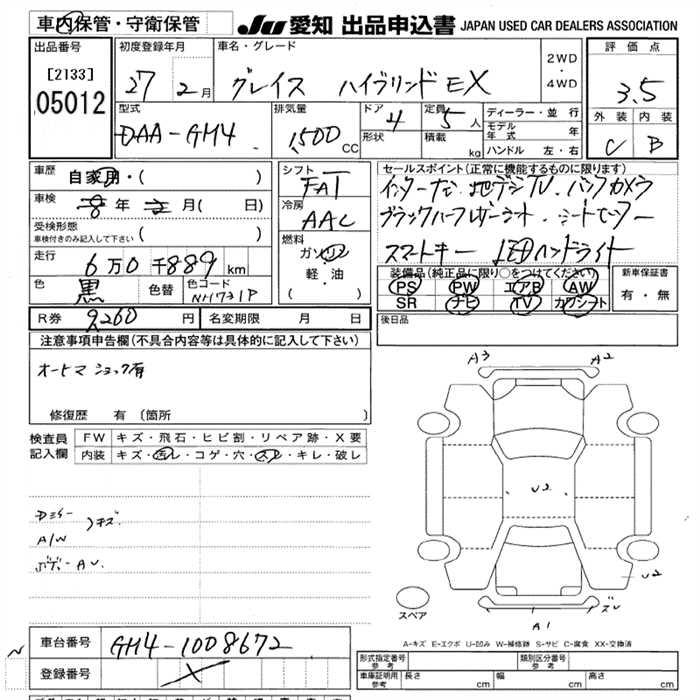 車内保管・守衛保管
JU 愛知 出品申込書 JAPAN USED CAR DEALERS ASSOCIATION
出品番号
[2133]
05012
初度登録年月
27 年 2月
車名・グレード
グレイス ハイブリッド EX
2WD
・
4WD
評価点
3.5
外装 内装
C B
型式
DAA-GM4
排気量
1,500 CC
ドア 4
形状
定員 5人
積載 kg
ディーラー・並行
モデル年式 年
ハンドル 左・右
車歴 自家用・( )
車検 8年 2月( 日)
受検形態
車検付きのみ記入して下さい ( )
走行 6万0千889km
色 黒 色替 色コード NH731P
シフト FAT
冷房 AAC
燃料
ガソリン
・
軽・油
( )
セールスポイント(正常に機能するものに限ります)
インターナビ 地デジTV. バックカメラ
ブラックハーフレザーシート. シートヒーター
スマートキー LEDヘッドライト
装備品(純正品に限り○をつけてください)
PS PW エアB AW
SR ナビ TV カワシート
新車保証書
有・無
R券 9,260円 名変期限 月 日
後日品
注意事項申告欄(不具合内容等は具体的に記入して下さい)
オートマ ショック有
修復歴 有(箇所 )
検査員記入欄
FW キズ・飛石・ヒビ割・リペア跡・X要
内装 キズ・汚レ・コゲ・穴・スレ・キレ・破レ
Dミラー
A/W キズ
ボデーAU.
A3 A2
U2
U2
ズレ
A1
スペア
A-キズ E-エクボ U-凹み W-補修跡 S-サビ C-腐食 XX-交換済
車台番号 GM4-1008672
登録番号 X
形式指定番号 参考
類別区分番号 参考
車庫証明用 参考 長さ cm 幅 cm 高さ cm